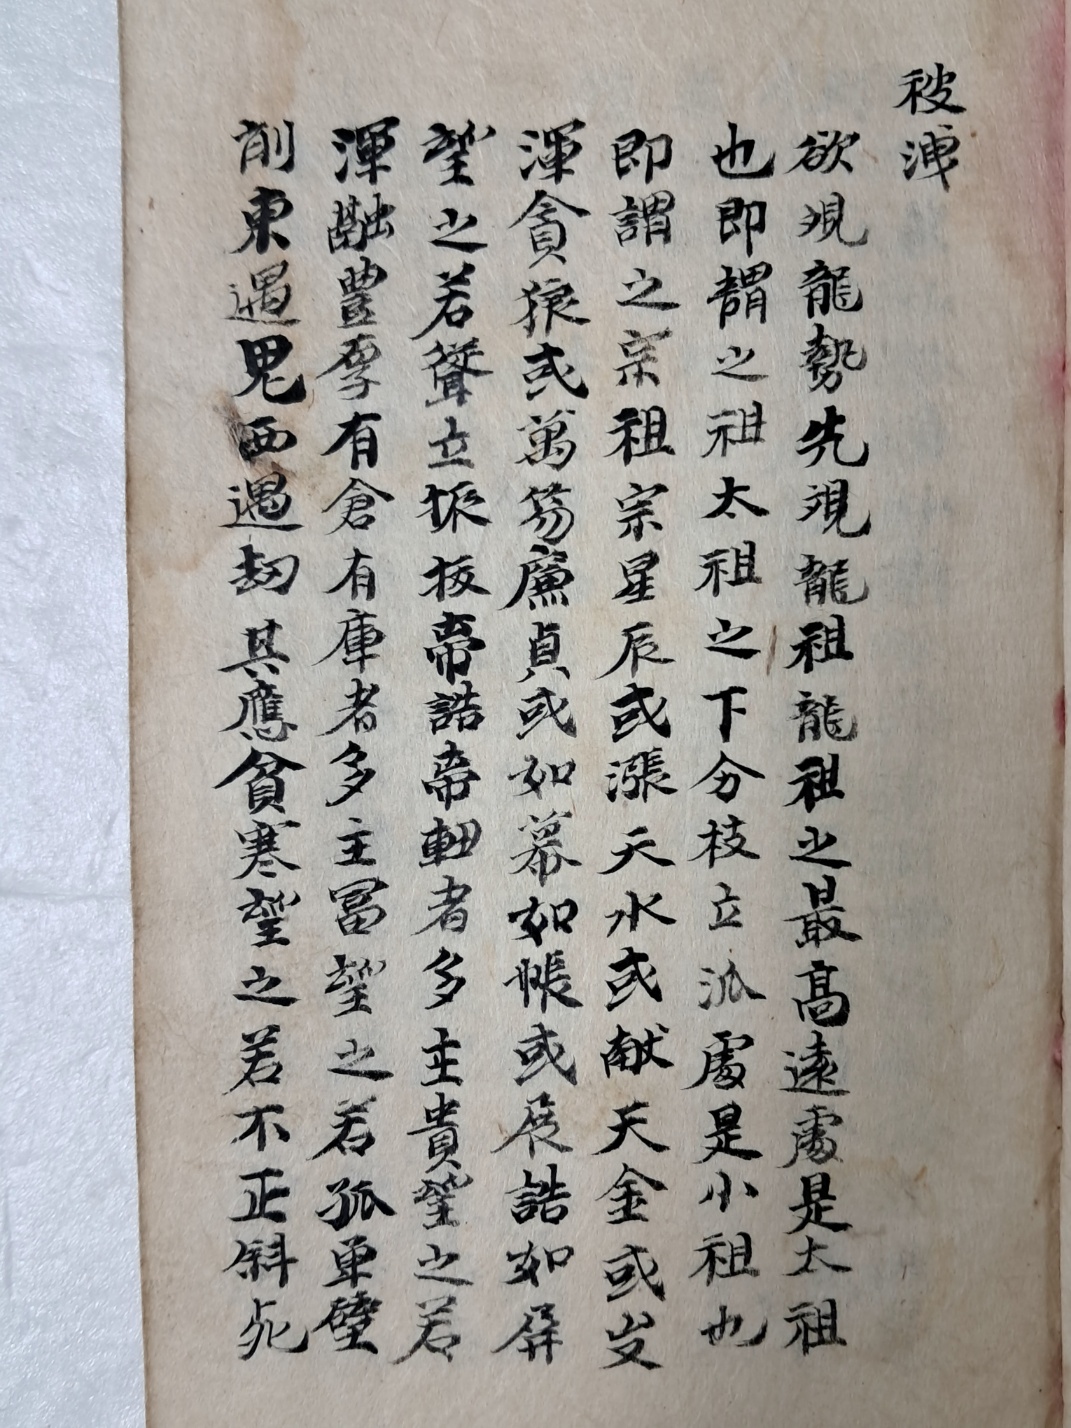 被洩
欲覌龍勢先覌龍祖龍祖之最高遠處是太祖
也即謂之祖太祖之下分枝立派處是小祖也
即謂之宗祖宗星辰或漲天水或献天金或㞮
渾貪狼或萬笏廉貞或如幕如帳或展誥如屏
望之若聳立振板帝誥帝軸者多主貴望之若
渾融豊厚有倉有庫者多主冨望之若孤單壁
削東遇鬼西遇刼其應貧寒望之若不正斜